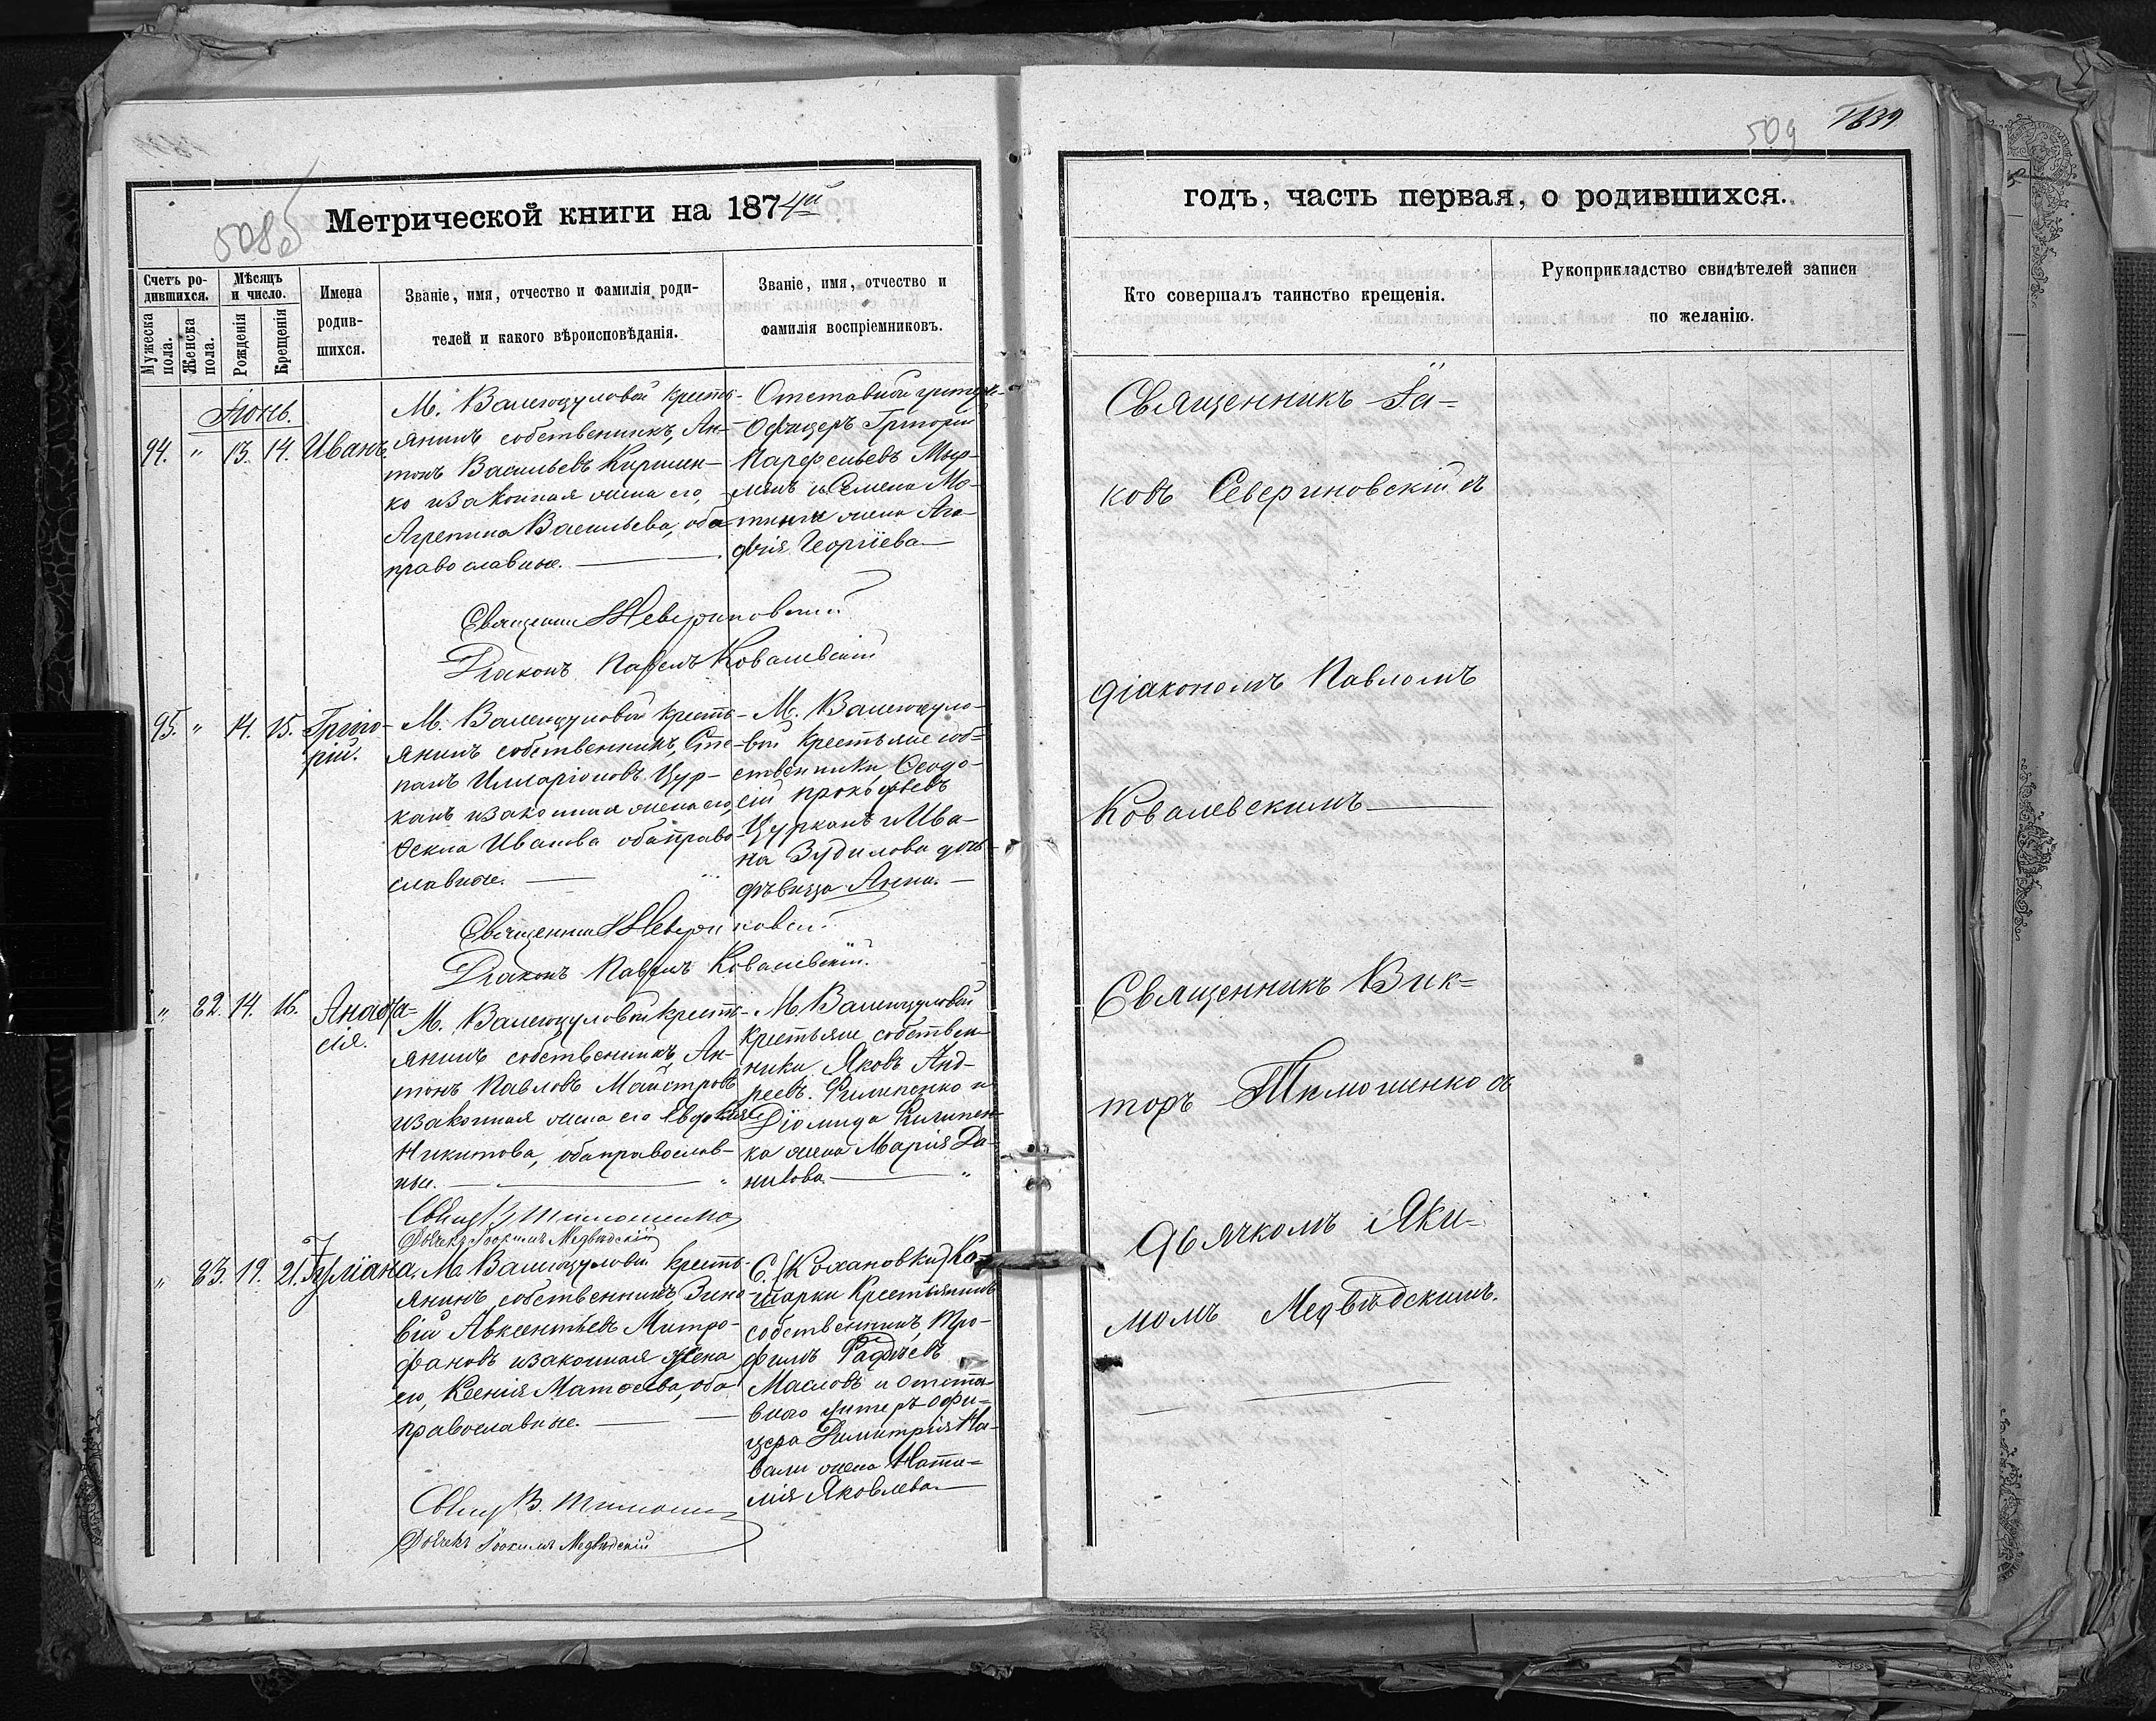 508 б
Метрической книги на 1874й
Счетъ ро-
дившихся.
Мужеска пола.
Женска пола.
Мѣсяцъ
и число.
Рожденія
Крещенія
Имена
родив-
шихся.
Званіе, имя, отчество и фамилія роди-
телей и какого вѣроисповѣданія.
Званіе, имя, отчество и
фамилія воспріемниковъ.
Іюнь.
94. " 13. 14. Иванъ.
М. Валегоцуловой кресть-
янинъ собственникъ, Ан-
тонъ Васильевъ Киришен-
ко и законная жена его,
Агрепина Васильева, оба
православные.
Отставной унтеръ-
Офицеръ Григорій
Парфеньевъ
и Семена Мо-
жена Ага-
фія Георгіева
Священникъ Севериновскій
Діаконъ Павелъ Ковалевскій
95. " 14. 15. Григо-
рій.
М. Валегоцуловой кресть-
янинъ собственникъ, Сте-
панъ Илларіоновъ Цур-
канъ и законная жена его,
Ѳекла Иванова оба право-
славные.
М. Валегоцуло-
вой крестьяне соб-
ственники Ѳеодо-
сій Прокофьевъ
Цурканъ и Ива-
на Зудилова дочь
дѣвица Анна.
Священникъ Севериновскій
Діаконъ Павелъ Ковалевскій.
" 82. 14. 16. Анаста-
сія.
М. Валегоцуловой кресть-
янинъ собственникъ, Ан-
тонъ Павловъ Майстровъ
и законная жена его Евдокія
Никитова, оба православ-
ные.
М. Валегоцуловой
крестьяне собствен-
ники Яковъ Анд-
реевъ Филипенко и
Діомида Филипен-
ка жена Марія Да-
нилова
Свящ. В. Тимошенко
Дьячекъ Іоакимъ Медвѣдскій
" 83. 19. 21. Іуліана.
М. Валегоцуловой кресть-
янинъ собственникъ, Зино-
вій Авксентьевъ Митро-
фановъ и законная жена
его, Ксенія Матѳеева, оба
православные.
С. (Кохановки) Ка-
шарки Крестьянинъ
собственникъ, Тро-
фимъ Фадѣевъ
Масловъ и отста-
внаго унтеръ офи-
цера Димитрія
жена Ната-
лія Яковлева
Свящ. В. Тимошенко
Дьячекъ Іоакимъ Медвѣдскій
509 1839
годъ, часть первая, о родившихся.
Кто совершалъ таинство крещенія.
Рукоприкладство свидѣтелей записи
по желанію.
Священникъ Іа-
ковъ Севериновскій съ
діакономъ Павломъ
Ковалевскимъ
Священникъ Вик-
торъ Тимошенко съ
дьячкомъ Яки-
момъ Медвѣдскимъ.